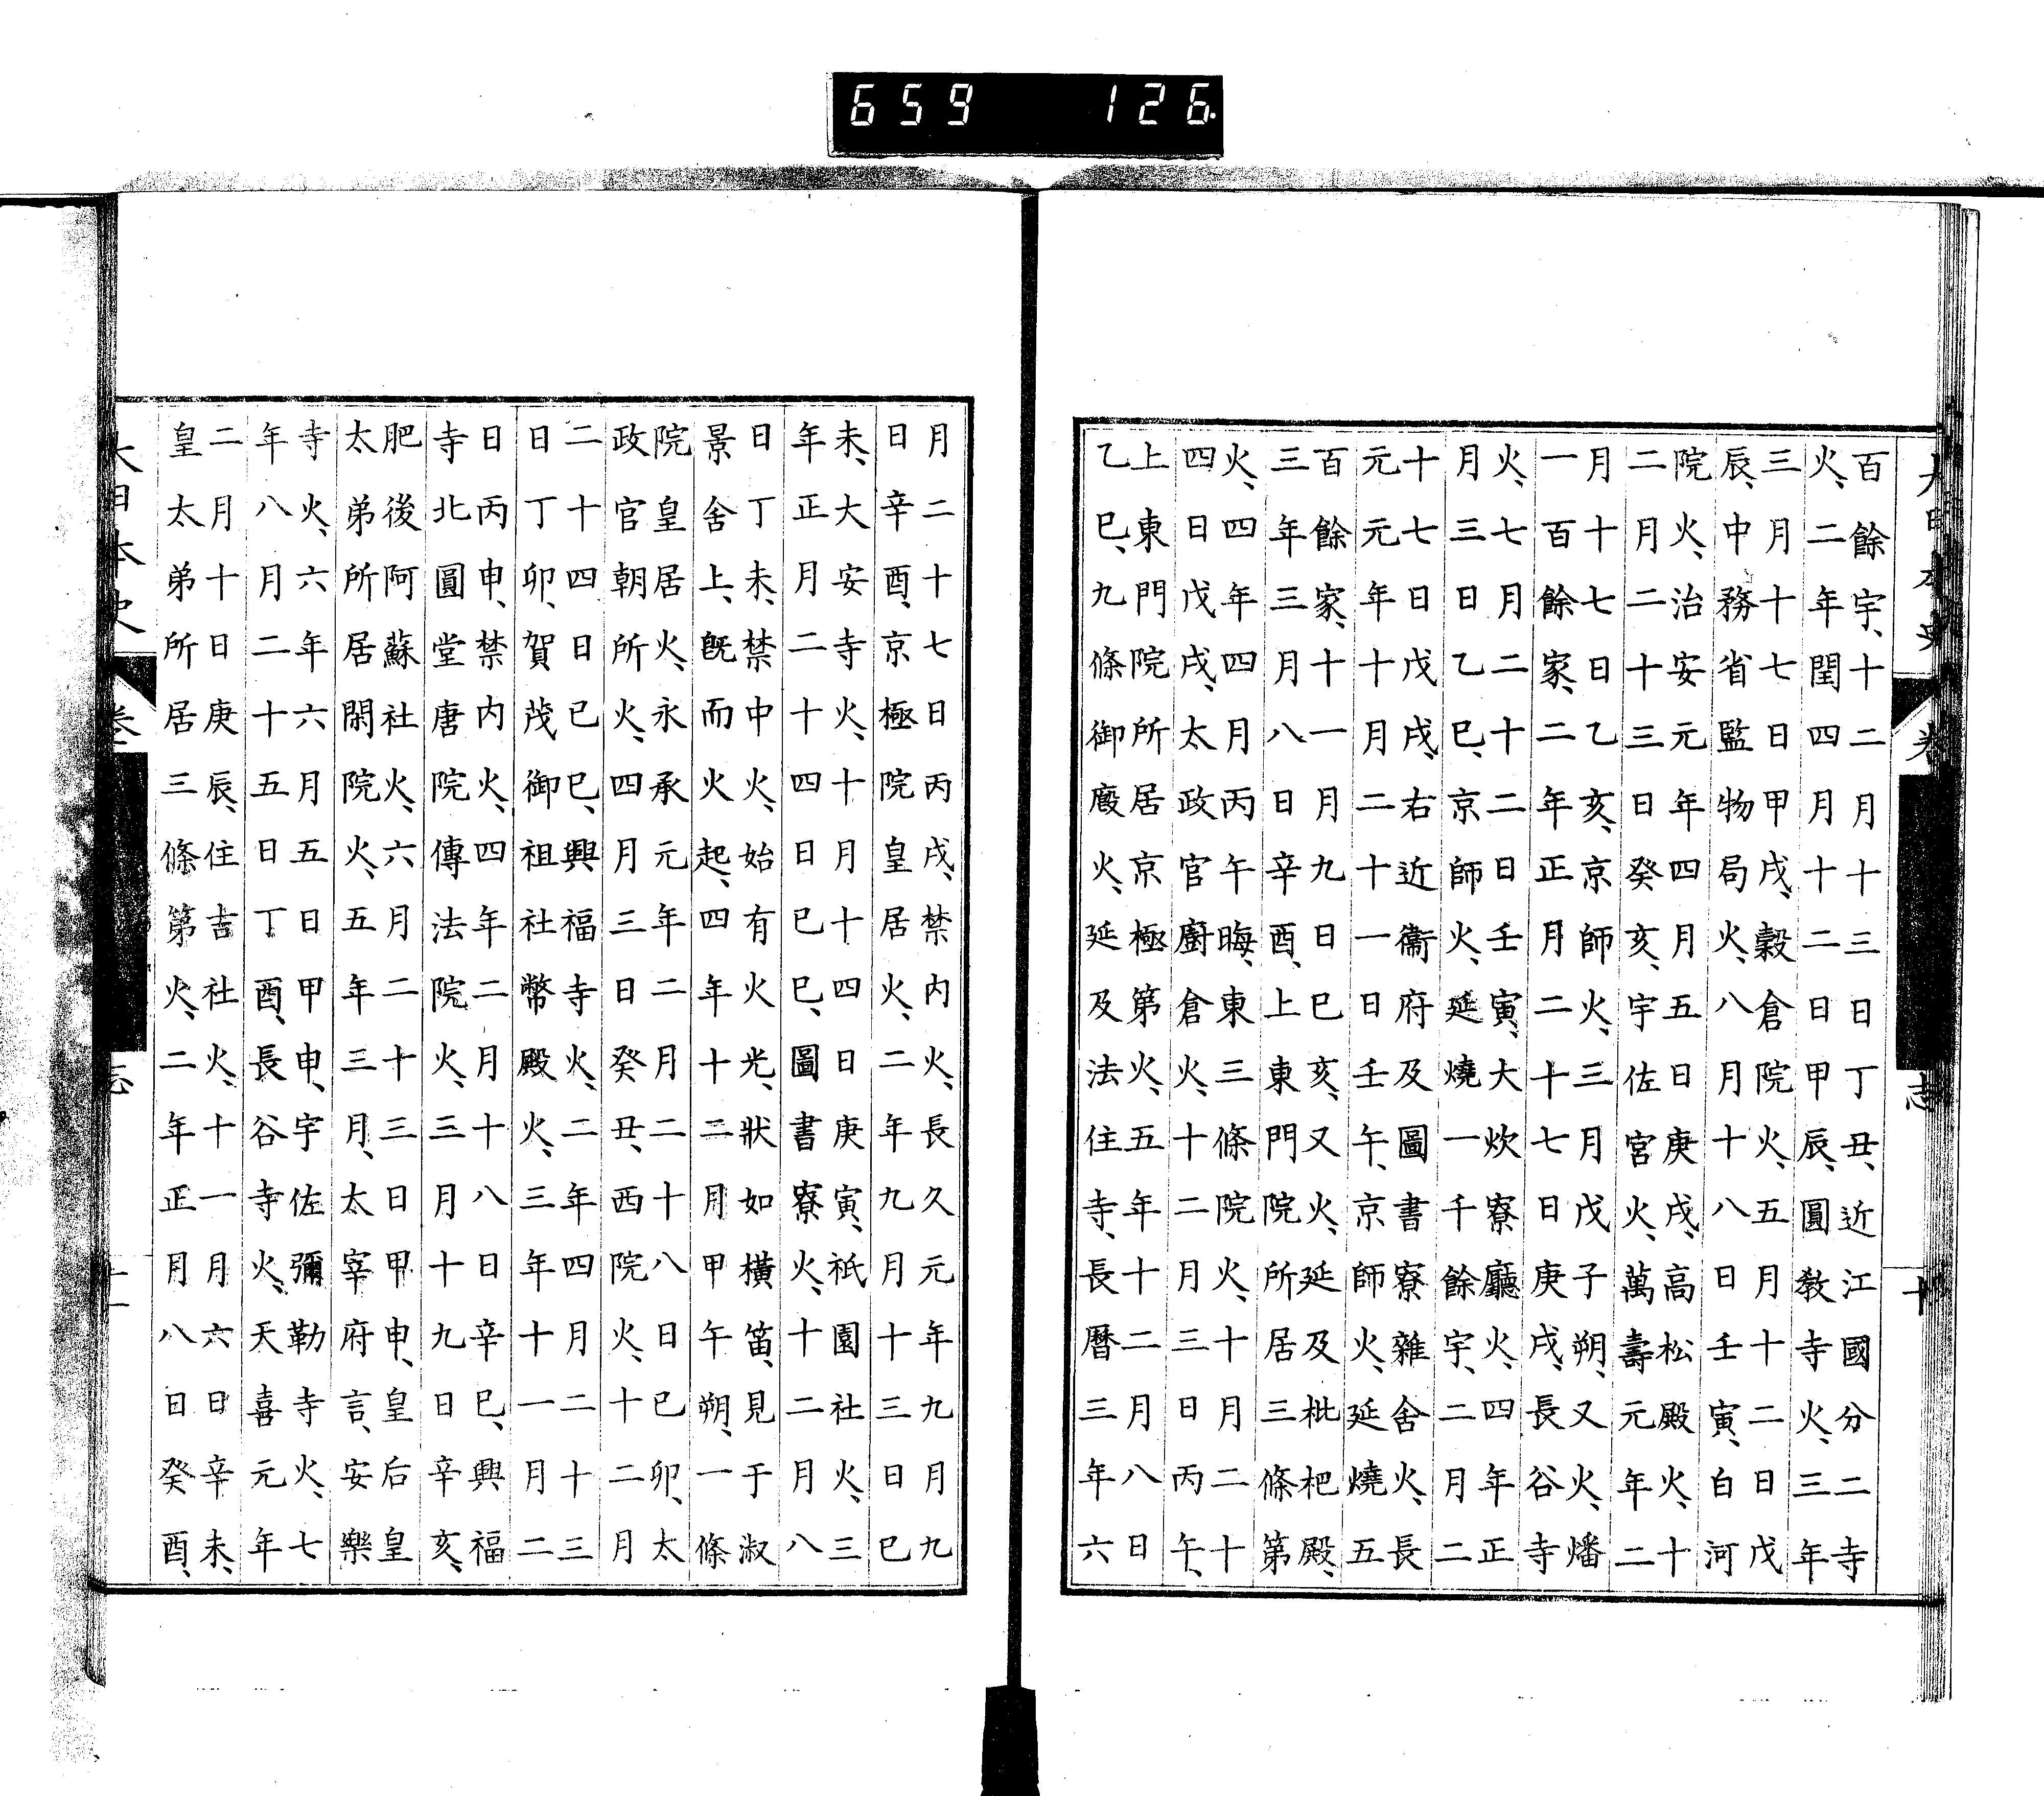 659 126
大日本史 卷 志 十
百餘宇、十二月十三日丁丑、近江國分二寺
火、二年閏四月十二日甲辰、圓教寺火、三年
三月十七日甲戌、穀倉院火、五月十二日戊
辰、中務省監物局火、八月十八日壬寅、白河
院火、治安元年四月五日庚戌、高松殿火、十
二月二十三日癸亥、宇佐宮火、萬壽元年二
月十七日乙亥、京師火、三月戊子朔、又火、燔
一百餘家、二年正月二十七日庚戌、長谷寺
火、七月二十二日壬寅、大炊寮廳火、四年正
月三日乙巳、京師火、延燒一千餘宇、二月二
十七日戊戌、右近衞府及圖書寮雜舍火、長
元元年十月二十一日壬午、京師火、延燒五
百餘家、十一月九日己亥、又火、延及枇杷殿、
三年三月八日辛酉、上東門院所居三條第
火、四年四月丙午晦、東三條院火、十月二十
四日戊戌、太政官廚倉火、十二月三日丙午、
上東門院所居京極第火、五年十二月八日
乙巳、九條御廄火、延及法住寺、長曆三年六
月二十七日丙戌、禁内火、長久元年九月九
日辛酉、京極院皇居火、二年九月十三日己
未、大安寺火、十月十四日庚寅、祇園社火、三
年正月二十四日己巳、圖書寮火、十二月八
日丁未、禁中火、始有火光、狀如橫笛、見于淑
景舍上、既而火起、四年十二月甲午朔、一條
院皇居火、永承元年二月二十八日己卯、太
政官朝所火、四月三日癸丑、西院火、十二月
二十四日己巳、興福寺火、二年四月二十三
日丁卯、賀茂御祖社幣殿火、三年十一月二
日丙申、禁内火、四年二月十八日辛巳、興福
寺北圓堂唐院傳法院火、三月十九日辛亥、
肥後阿蘇社火、六月二十三日甲申、皇后皇
太弟所居閑院火、五年三月、太宰府言、安樂
寺火、六年六月五日甲申、宇佐彌勒寺火、七
年八月二十五日丁酉、長谷寺火、天喜元年
二月十日庚辰、住吉社火、十一月六日辛未、
皇太弟所居三條第火、二年正月八日癸酉、
大日本史 卷 志